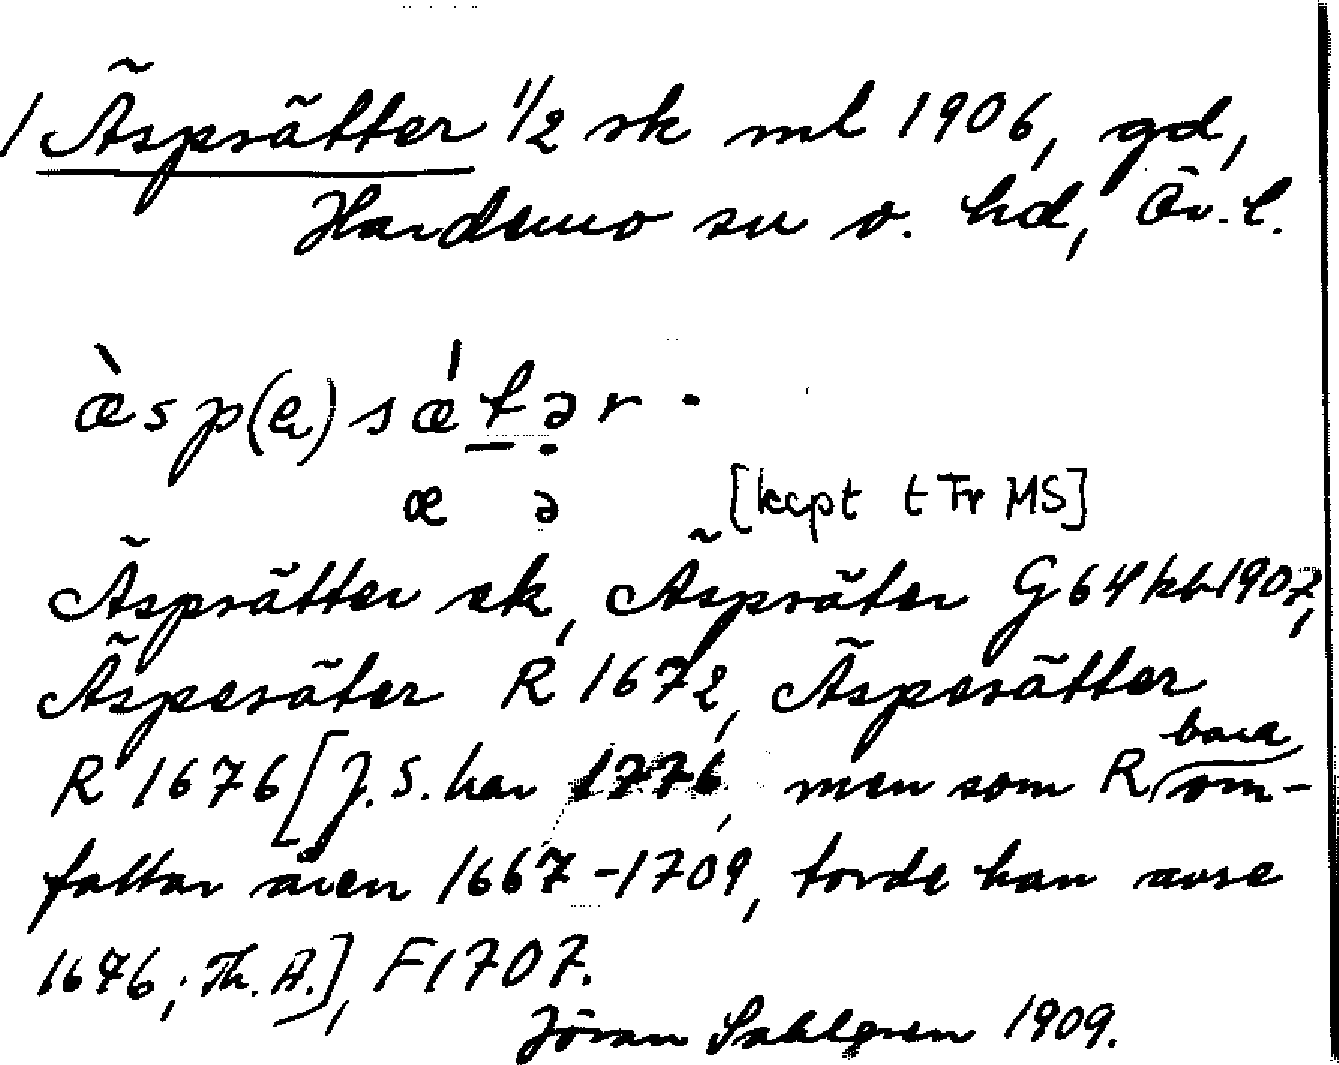 1 Äspsätter 1/2 sk ml 1906, gd,
Hardemo sn o. hd, Ör. l.
æ̀sp(e)sǽtər.
æ ə [kcpt t Tr MS]
Äspsätter sk, Äspsäter G 64 kb 1907,
Äspesäter R 1672, Äspesätter
R 1676 [J. S. har 1776, men som R bara om-
fattar åren 1667-1709, torde han avse
1676; Th. A.], F 1707.
Jöran Sahlgren 1909.